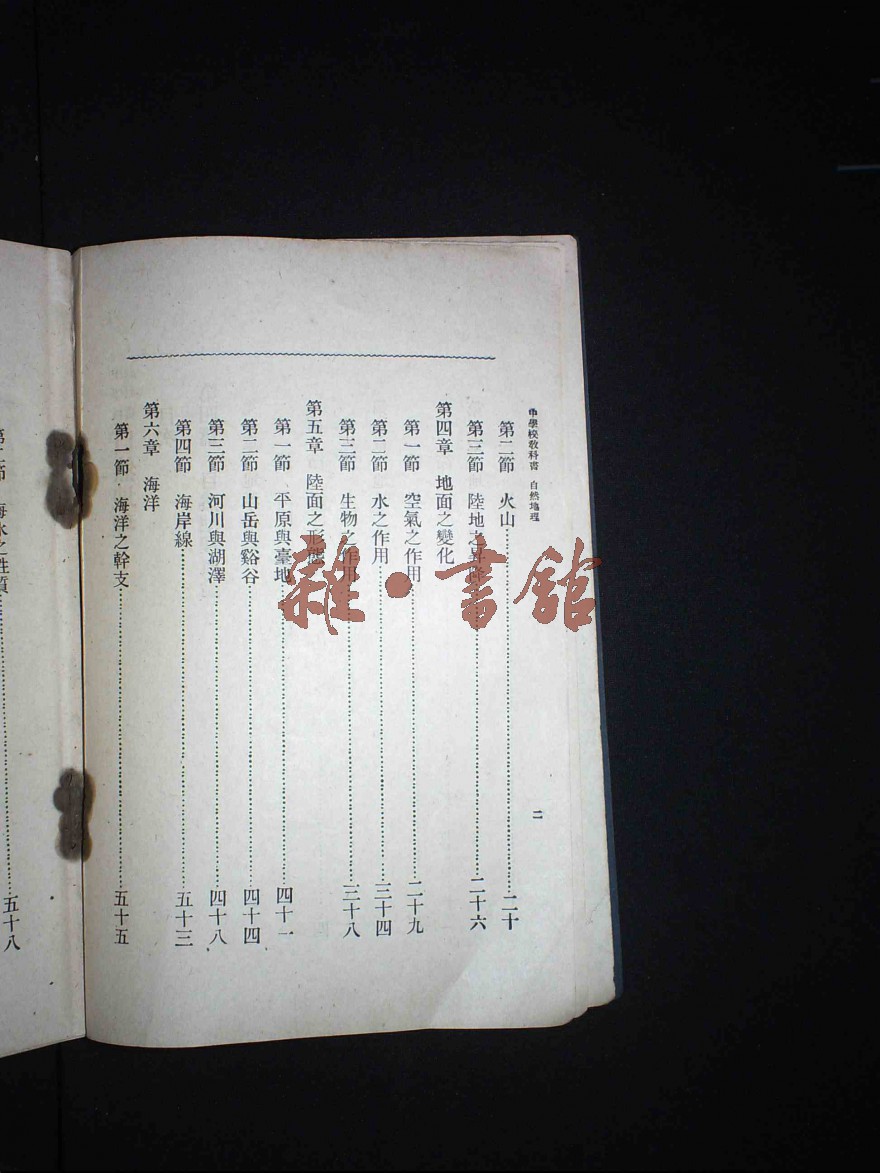 中學校教科書 自然地理
二
第二節 火山 二十
第三節 陸地之昇降 二十六
第四章 地面之變化
第一節 空氣之作用 二十九
第二節 水之作用 三十四
第三節 生物之作用 三十八
第五章 陸面之形態
第一節 平原與臺地 四十一
第二節 山岳與谿谷 四十四
第三節 河川與湖澤 四十八
第四節 海岸線 五十三
第六章 海洋
第一節 海洋之幹支 五十五
第二節 海水之性質 五十八
雜·書館